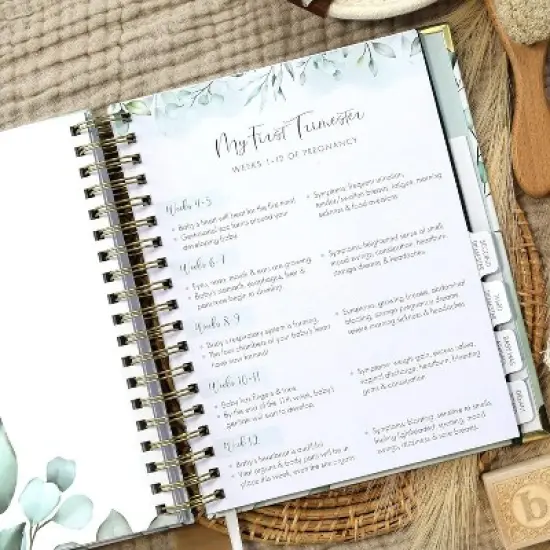 My First Trimester
WEEKS 1-12 OF PREGNANCY
Weeks 4-5
• Baby's heart will beat for the first time!
• Gestational sac forms around your
developing baby.
• Symptoms: frequent urination,
tender/swollen breasts, fatigue, morning
sickness & food aversions
Weeks 6-7
• Eyes, nose, mouth & ears are growing.
• Baby's stomach, esophagus, liver &
pancreas begin to develop.
• Symptoms: heightened sense of smell,
mood swings, constipation, heartburn,
strange desires & headaches.
Weeks 8-9
• Baby's respiratory system is forming.
• The four chambers of your baby's heart
have now formed!
• Symptoms: growing breasts, abdominal
bloating, strange pregnancy dreams
severe morning sickness & headaches
Weeks 10-11
• Baby has fingers & toes.
• By the end of the 11th week, baby's
genitals will start to develop.
• Symptoms: weight gain, excess saliva,
vaginal discharge, heartburn, bleeding
gums & constipation
Week 12
• Baby's heartbeat is audible.
• Vital organs & body parts will be in
place this week, even the sex organs.
• Symptoms: bloating, sensitive to smells,
feeling lightheaded, spotting, mood
swings, dizziness & sore breasts.
SECOND
TRIMESTER
THIRD
TRIMESTER
BABY HAS
ARRIVED
DIGITAL
b